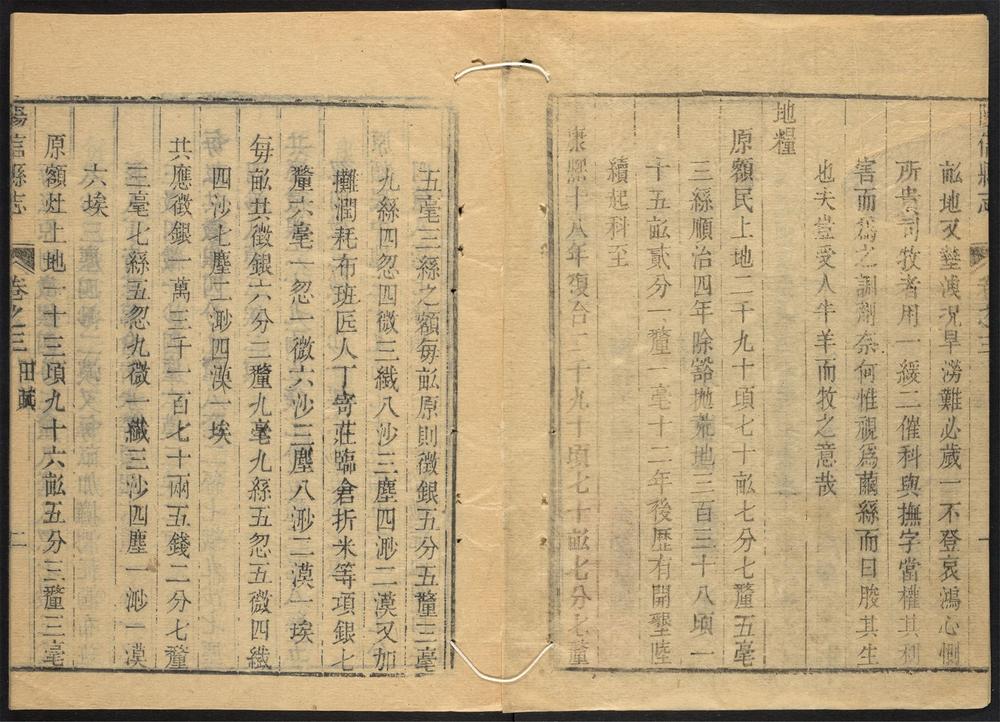 陽信縣志
卷之三
一
畝地又鹻湳況旱澇難必歲一不登哀鴻心惻
所貴司牧者用一緩二催科與撫字當權其利
害而為之調劑奈何惟視為繭絲而曰朘其生
也夫豈受人牛羊而牧之意哉
地糧
原額民上地二千九十頃七十畝七分七釐五毫
三絲順治四年除豁拋荒地三百三十八頃一
十五畝貳分一釐一毫十二年後歷有開墾陸
續起科至
康熙十八年復合二千九十頃七十畝七分七釐
五毫三絲之額每畝原則徵銀五分五釐三毫
九絲四忽四微三纖八沙三塵四渺二漠又加
攤潤耗布班匠人丁寄莊臨倉折米等項銀七
釐六毫一忽一微六沙三塵八渺二漠一埃
每畝共徵銀六分二釐九毫九絲五忽五微四纖
四沙七塵二渺四漠一埃
共應徵銀一萬三千一百七十兩五錢二分七釐
三毫七絲五忽九微一纖三沙四塵一渺一漠
六埃
原額灶上地一十三頃九十六畝五分三釐三毫
陽信縣志
卷之三
田賦
二